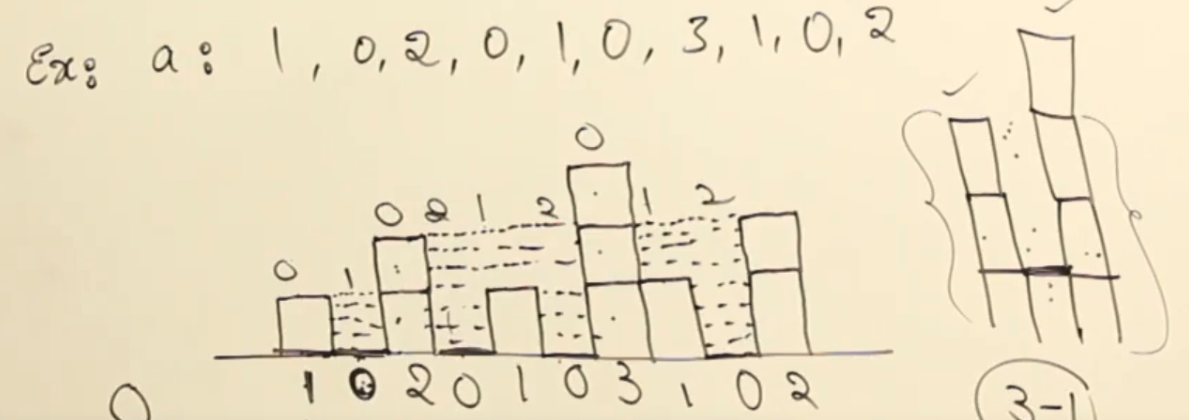 Ex: a: 1, 0, 2, 0, 1, 0, 3, 1, 0, 2
0
0 1 0 2 1 2 1 2
1 0 2 0 1 0 3 1 0 2
0 3-1